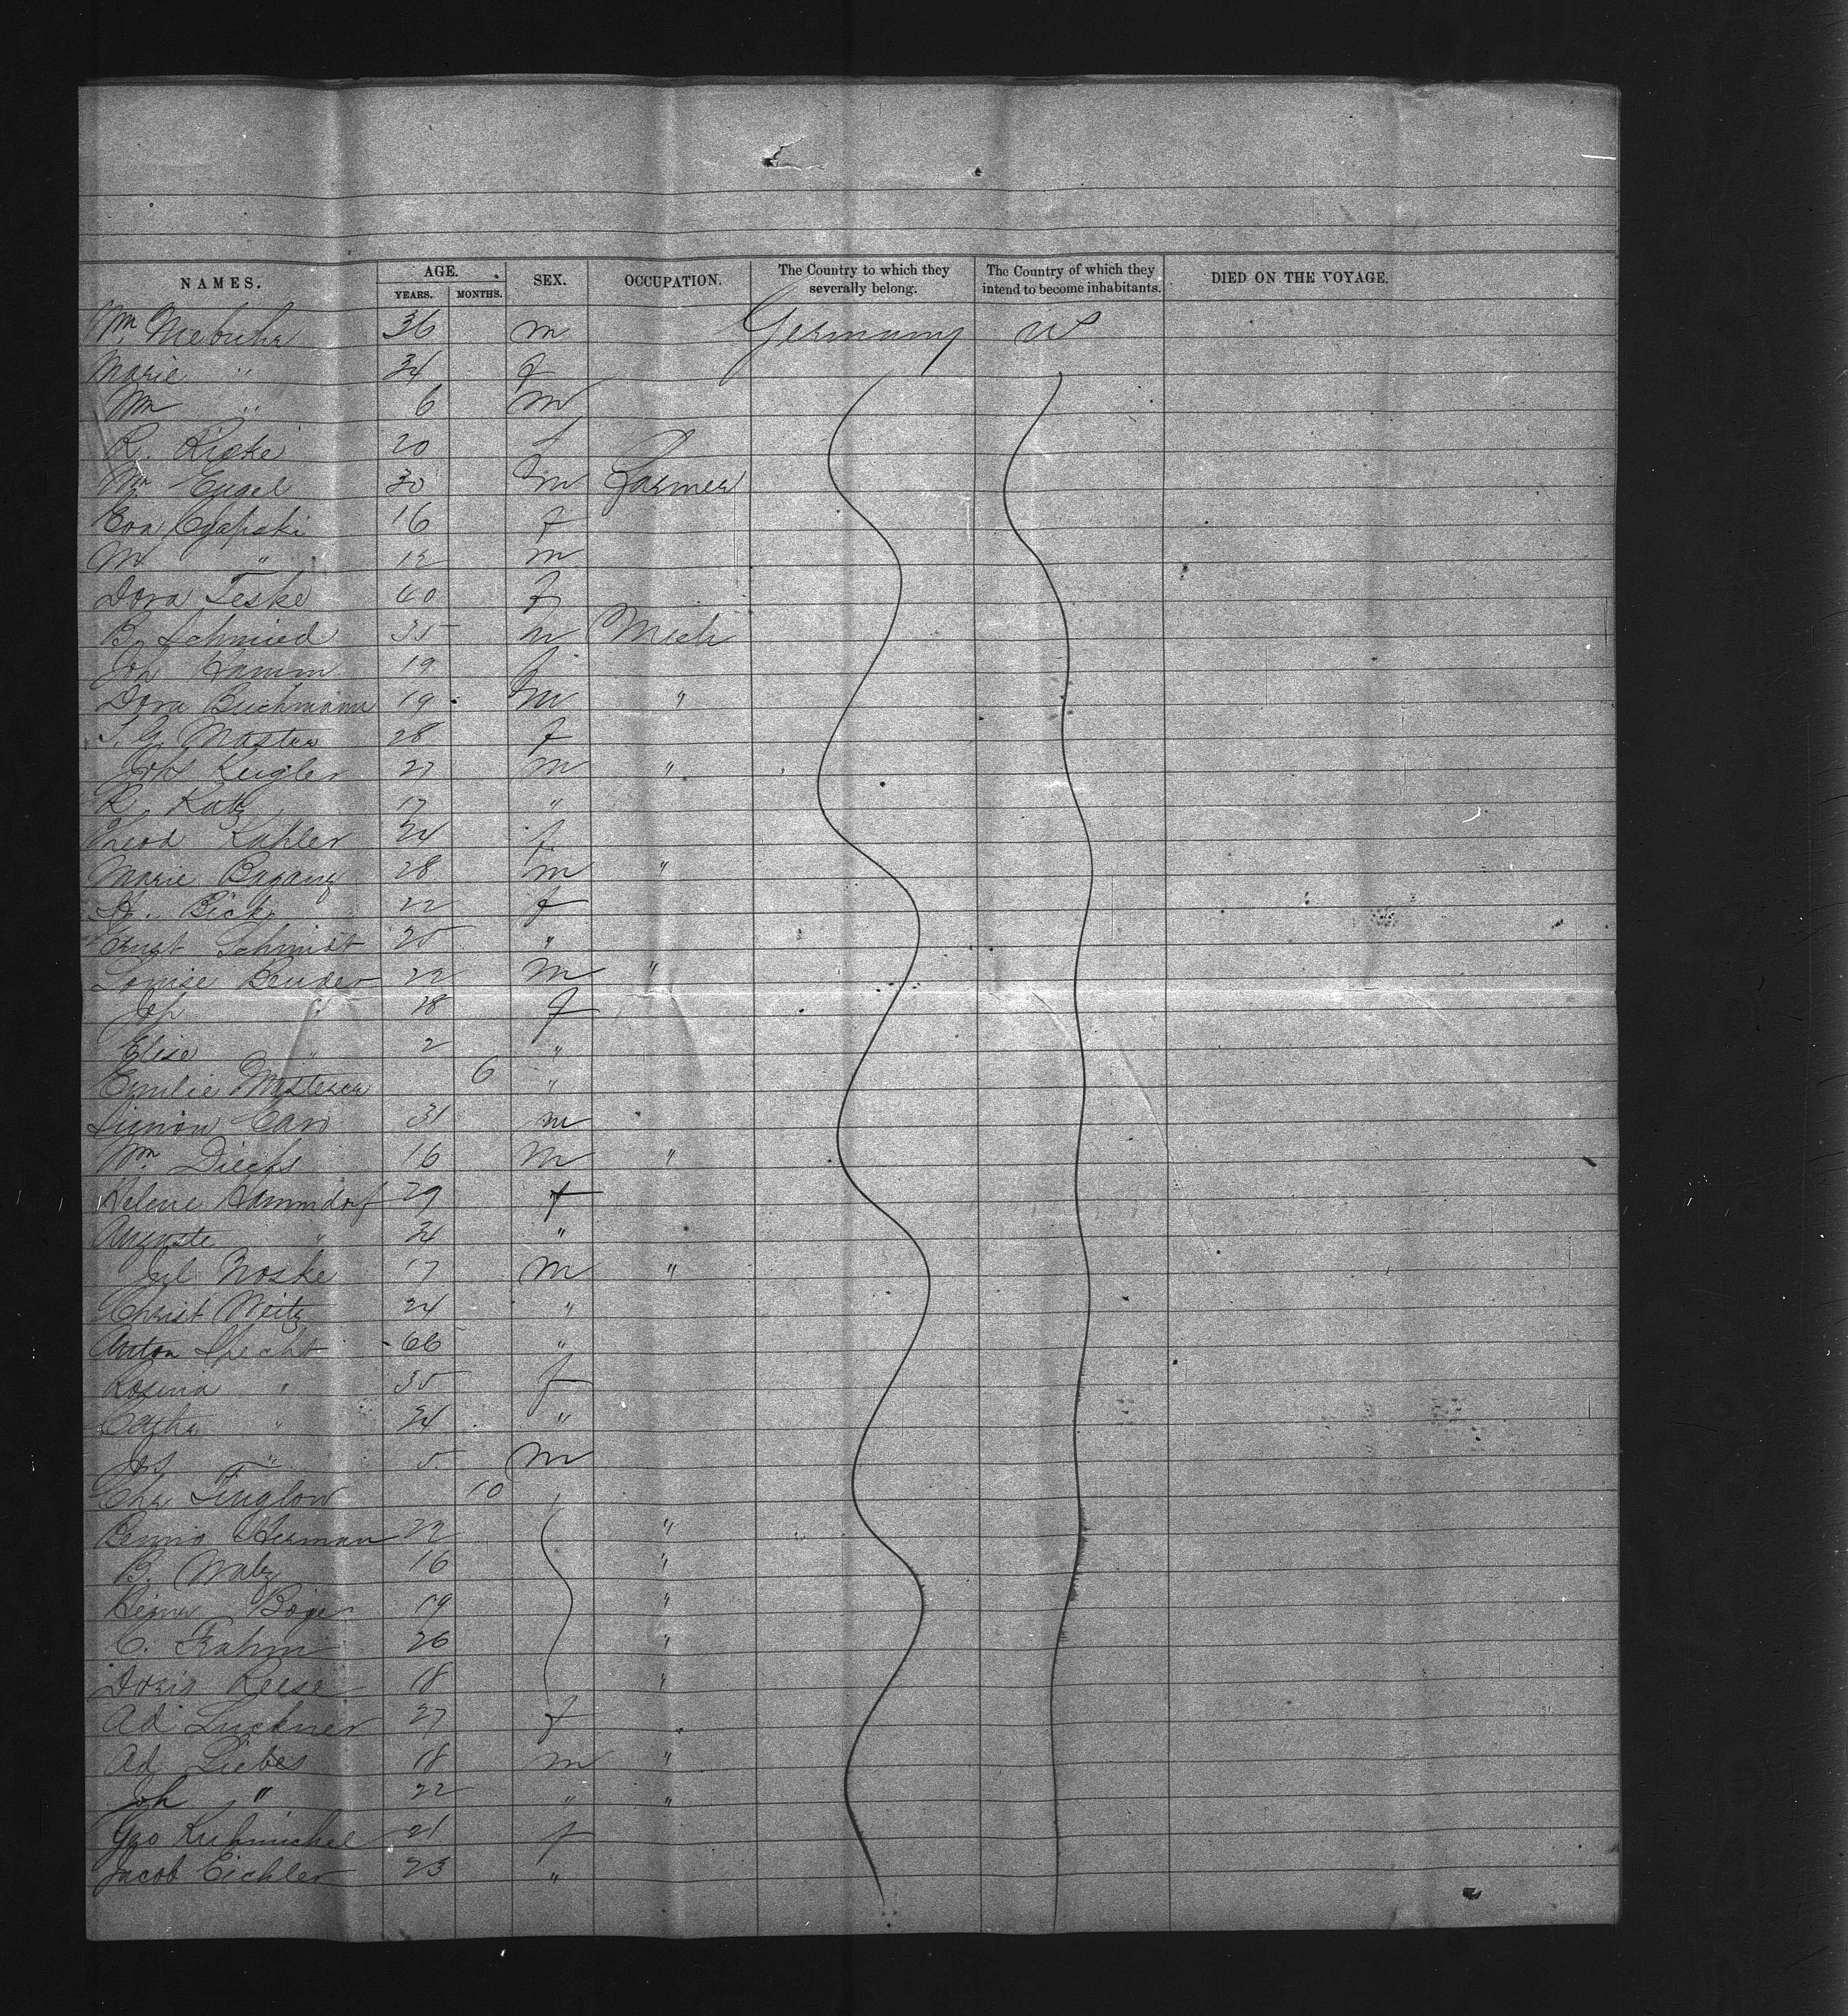 NAMES. AGE. SEX. OCCUPATION. The Country to which they severally belong. The Country of which they intend to become inhabitants. DIED ON THE VOYAGE.
YEARS. MONTHS.
Wm Niebuhr 36 m Germany US
Marie " 34 f
Wm " 6 m
R. 20 f
Wm Engel 30 m Farmer
Eva Czapski 16 f
M " 12 m
Dora Teske 60 f
B. Schmied 35 m Mech
Joh Hamm 19
Dora Buchmann 19 m "
28 f
Johs Kugler 27 m "
R. Katz 17 "
Theod Kahler 34 f
Marie 28 m "
22 f
Ernst Schmidt 20 "
Louise Bender 22 m "
" 28 f
Elise " 2 "
Emilie 6 "
Simon Caro 31 m
Wm 16 m "
Helene Hammdorf 29 f
Auguste " 34 "
Jul Noske 17 m "
Christ Weitz 24 "
Anton Specht 66 "
Rosina " 35 f
" 34 "
" 5 m
Chr 10
Benno Herman 22 "
B. 16 "
19 "
C. Frahm 26 "
Doris Reese 18 "
Ad Luckner 27 f "
Ad Liebes 18 m "
Joh " 22 " "
Geo Kuhmichel 21 f
Jacob Eichler 23 "